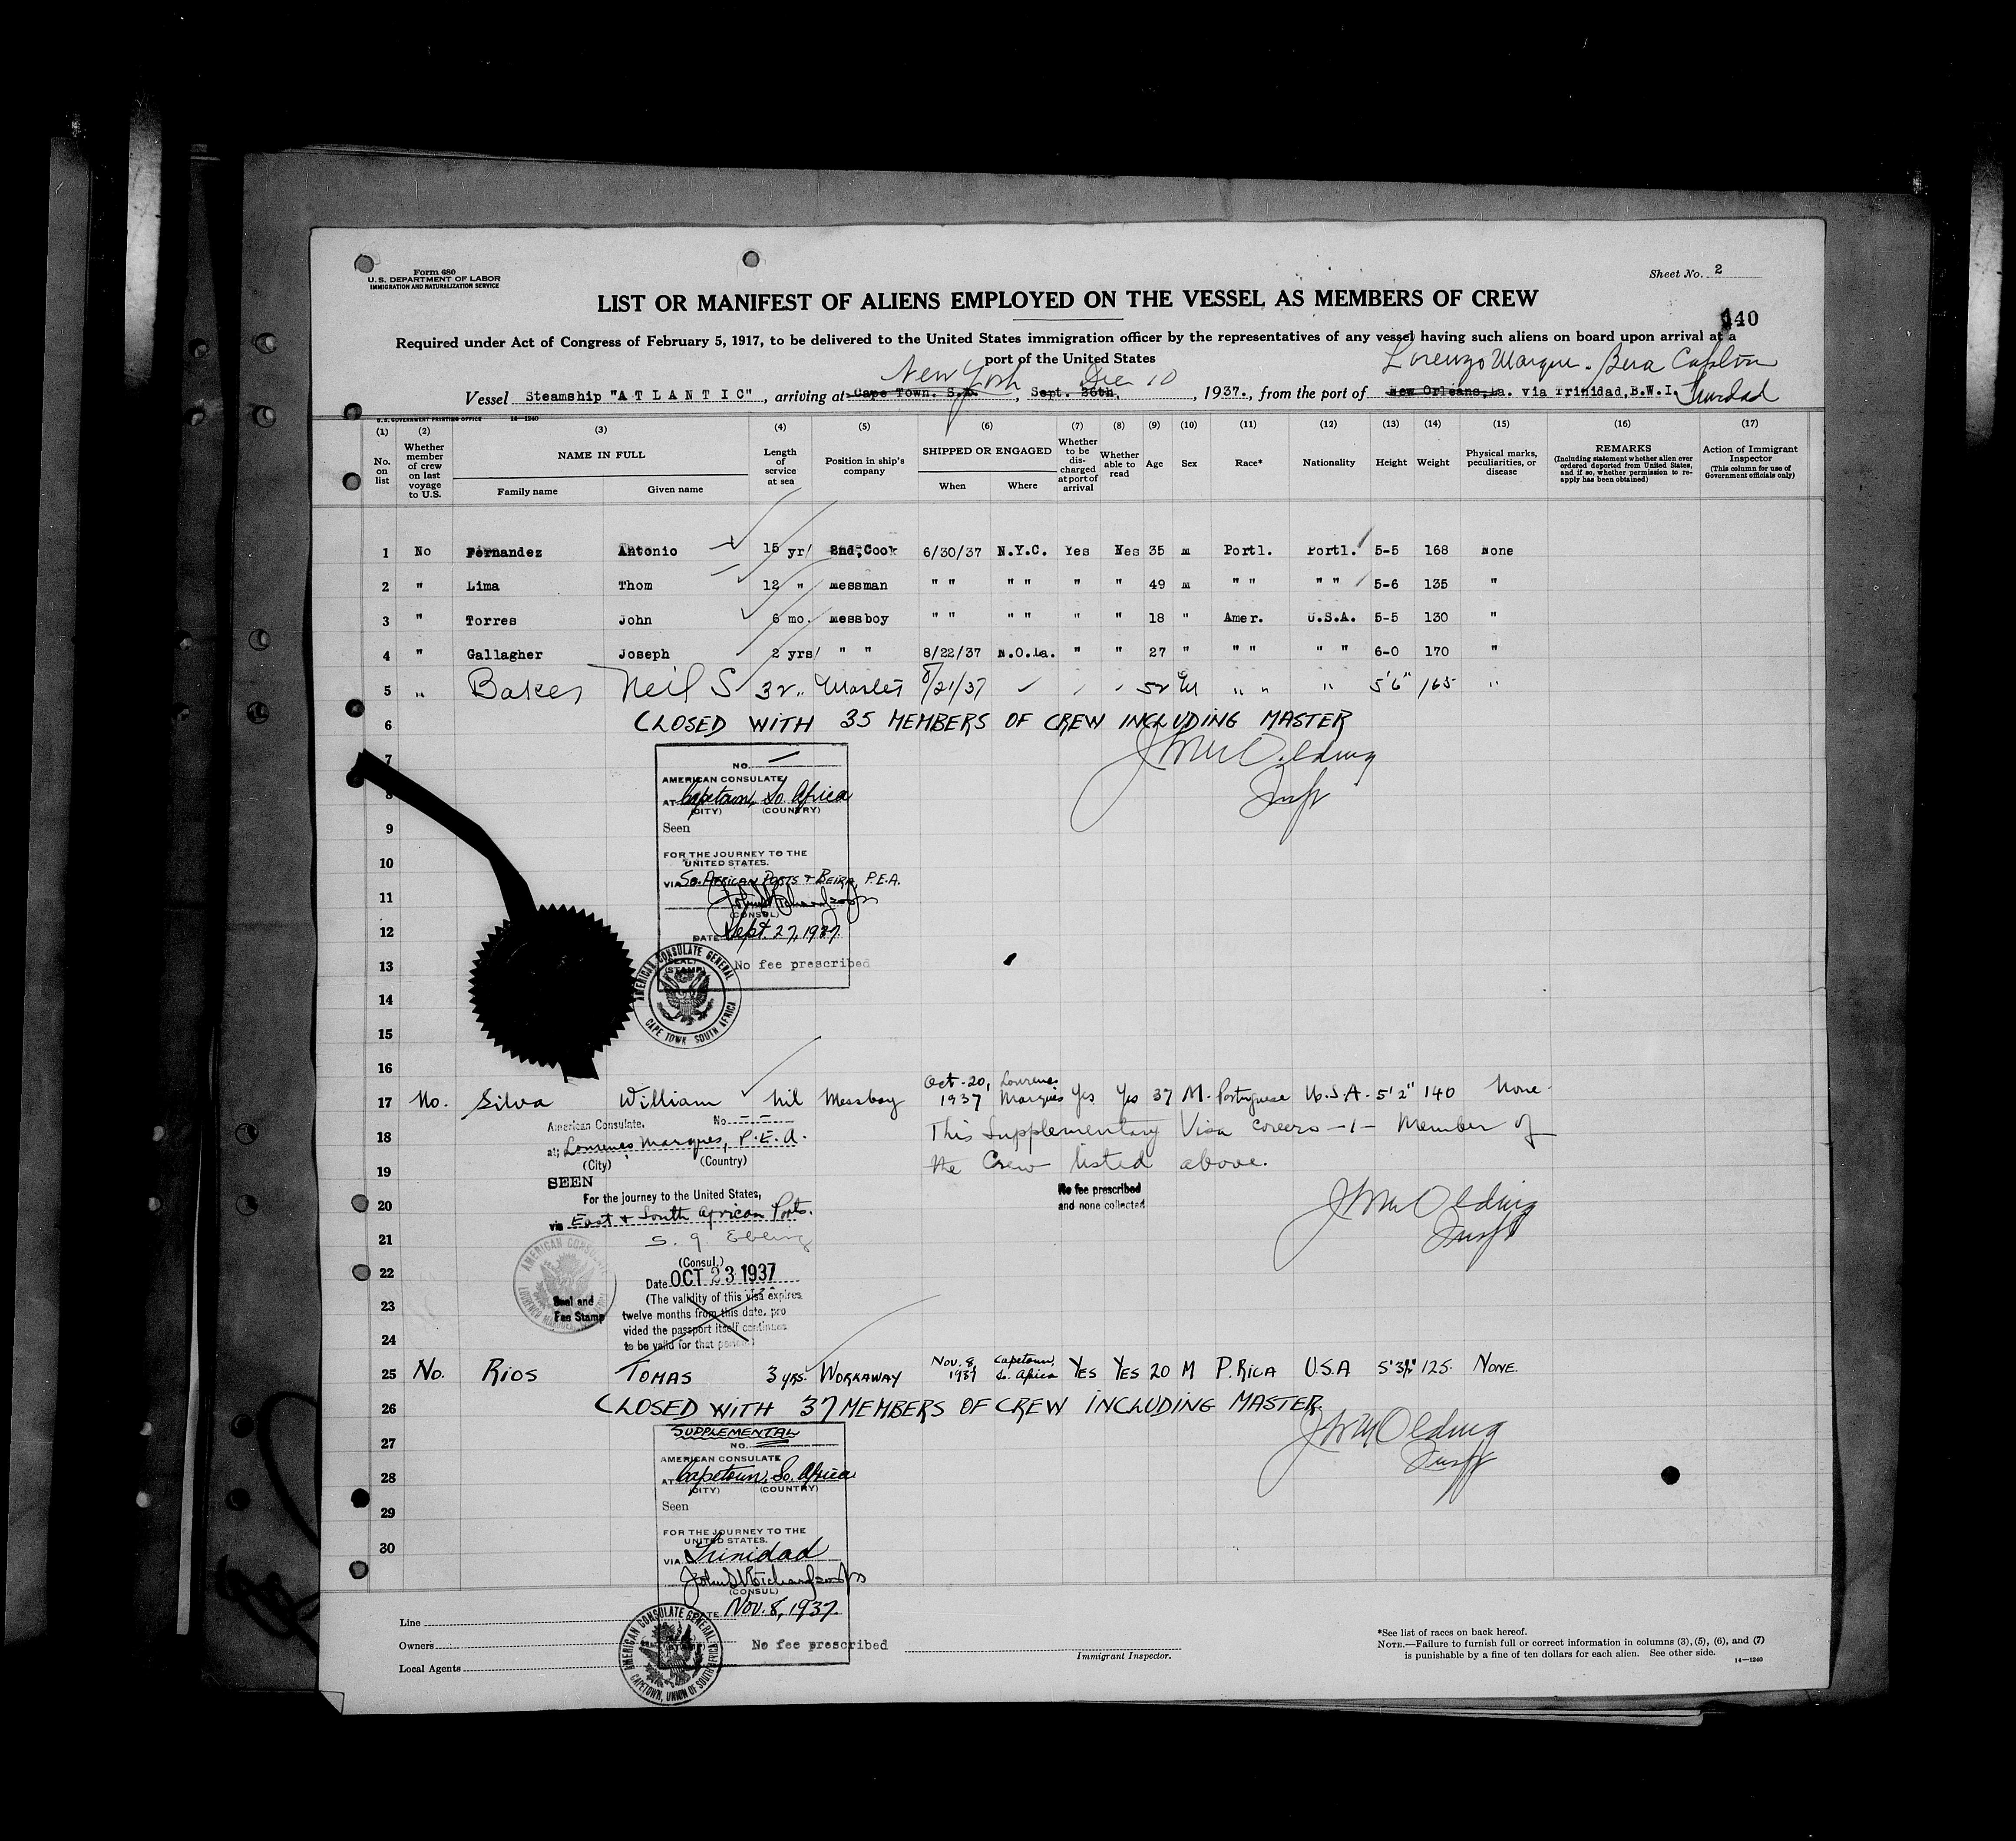 Form 680
U.S. DEPARTMENT OF LABOR
IMMIGRATION AND NATURALIZATION SERVICE
Sheet No. 2
LIST OR MANIFEST OF ALIENS EMPLOYED ON THE VESSEL AS MEMBERS OF CREW
140
Required under Act of Congress of February 5, 1917, to be delivered to the United States immigration officer by the representatives of any vessel having such aliens on board upon arrival at a
port of the United States
New York Dec 10 Lorenzo Marque. Bera Capton
Vessel Steamship "ATLANTIC", arriving at Cape Town. S.A., Sept. 26th, 1937., from the port of New Orleans, La. via Trinidad, B.W.I. Trinidad
U.S. GOVERNMENT PRINTING OFFICE 14-1240
(1) (2) (3) (4) (5) (6) (7) (8) (9) (10) (11) (12) (13) (14) (15) (16) (17)
No. on list
Whether member of crew on last voyage to U.S.
NAME IN FULL
Family name Given name
Length of service at sea
Position in ship's company
SHIPPED OR ENGAGED
When Where
Whether to be discharged at port of arrival
Whether able to read
Age Sex Race* Nationality Height Weight
Physical marks, peculiarities, or disease
REMARKS
(Including statement whether alien ever ordered deported from United States, and if so, whether permission to re-apply has been obtained)
Action of Immigrant Inspector
(This column for use of Government officials only)
1 No Fernandez Antonio 15 yr/ 2nd, Cook 6/30/37 N.Y.C. Yes Nes 35 m Portl. Portl. 5-5 168 None
2 " Lima Thom 12 " messman " " " " " " 49 m " " " " 5-6 135 "
3 " Torres John 6 mo. messboy " " " " " " 18 " Amer. U.S.A. 5-5 130 "
4 " Gallagher Joseph 2 yrs/ " " 8/22/37 N.O.La. " " 27 " " " " " 6-0 170 "
5 " Baker Neil S 32 " Master 8/21/37 52 M " " " 5'6" 165 "
6 CLOSED WITH 35 MEMBERS OF CREW INCLUDING MASTER
7
NO.
AMERICAN CONSULATE
8 AT Capetown, So. Africa
(CITY) (COUNTRY)
9 Seen
FOR THE JOURNEY TO THE
10 UNITED STATES.
VIA So. AFRICAN PORTS & BEIRA, P.E.A.
11
(CONSUL)
12 DATE Sept. 27, 1937.
13 No fee prescribed
AMERICAN CONSULATE GENERAL
CAPE TOWN SOUTH AFRICA
14
15
16
17 No. Silva William Nil Messboy Oct-20, 1937 Lourenço Marques Yes Yes 37 M. Portuguese U.S.A. 5'2" 140 None
American Consulate, No
18 This Supplementary Visa covers -1- Member of
at; Lourenço Marques, P.E.A.
(City) (Country)
19 the Crew listed above.
SEEN
No fee prescribed
and none collected
For the journey to the United States,
20
via East & South African Ports.
21 S. G. Ebling
(Consul.)
22 Date OCT 23 1937
Seal and
Fee Stamp
(The validity of this visa expires
23 twelve months from this date, pro
vided the passport itself continues
24 to be valid for that period)
25 No. RIOS TOMAS 3 YRS. WORKAWAY Nov. 8, 1937 Capetown, So. Africa YES YES 20 M P.RICA U.S.A 5'3½" 125. NONE.
26 CLOSED WITH 37 MEMBERS OF CREW INCLUDING MASTER.
SUPPLEMENTAL
27 NO.
AMERICAN CONSULATE
28 AT Capetown, So. Africa
(CITY) (COUNTRY)
29 Seen
FOR THE JOURNEY TO THE
UNITED STATES.
30 VIA Trinidad
(CONSUL)
DATE Nov. 8, 1937.
No fee prescribed
AMERICAN CONSULATE GENERAL
CAPETOWN, UNION OF SOUTH AFRICA
Line
Owners
Local Agents
Immigrant Inspector.
*See list of races on back hereof.
NOTE.—Failure to furnish full or correct information in columns (3), (5), (6), and (7)
is punishable by a fine of ten dollars for each alien. See other side.
14—1240